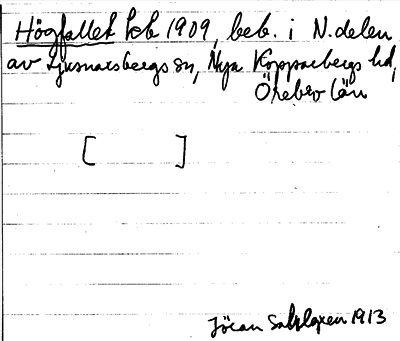 Högfallet tok 1909, beb. i N.delen
av Ljusnarsbergs sn, Nya Kopparbergs hd,
Örebro län
[ ]
Jöran Sahlgren 1913